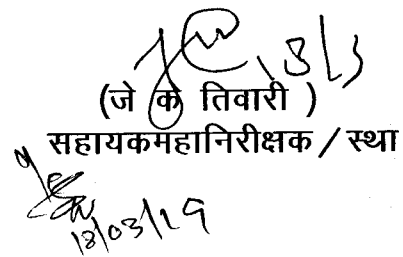 18/3
(जे के तिवारी )
सहायकमहानिरीक्षक / स्था
18/03/19